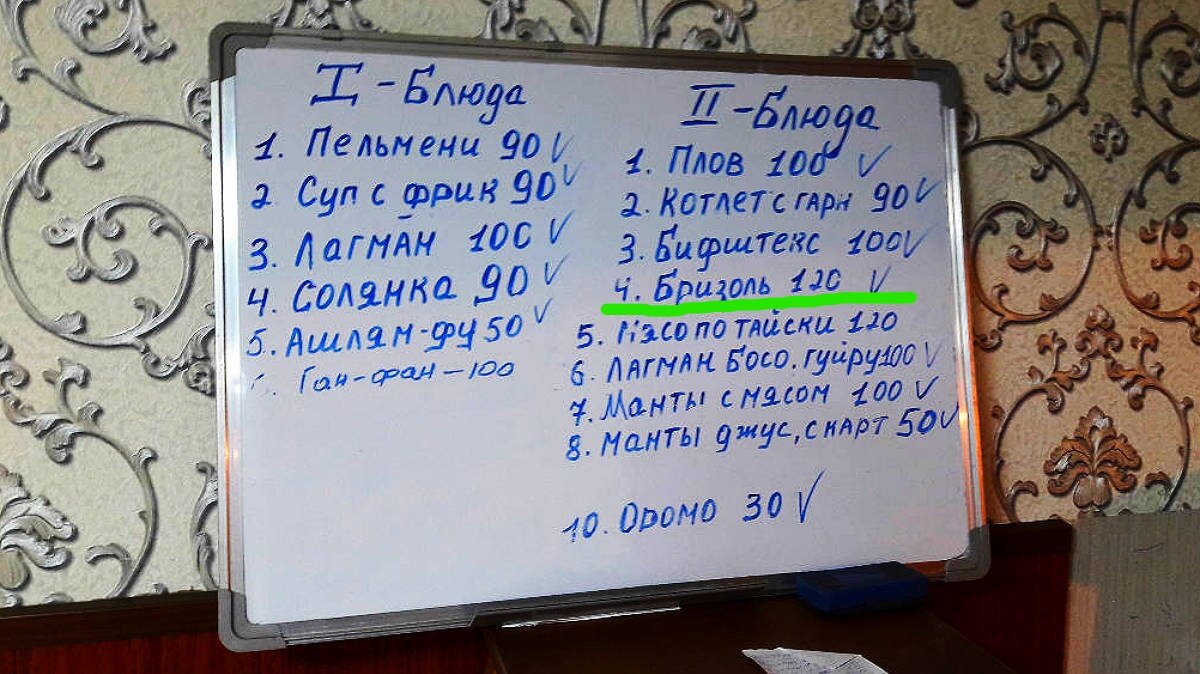 I - Блюда
1. Пельмени 90 ✓
2 Суп с фрик 90 ✓
3. Лагман 100 ✓
4. Солянка 90 ✓
5. Ашлям-фу 50 ✓
Ган-фан-100
II - Блюда
1. Плов 100 ✓
2. Котлет с гарн 90 ✓
3. Бифштекс 100 ✓
4. Бризоль 120 ✓
5. Мясо по тайски 120
6. Лагман босо, гуйру 100 ✓
7. Манты с мясом 100 ✓
8. Манты джус, с карт 50 ✓
10. Оромо 30 ✓